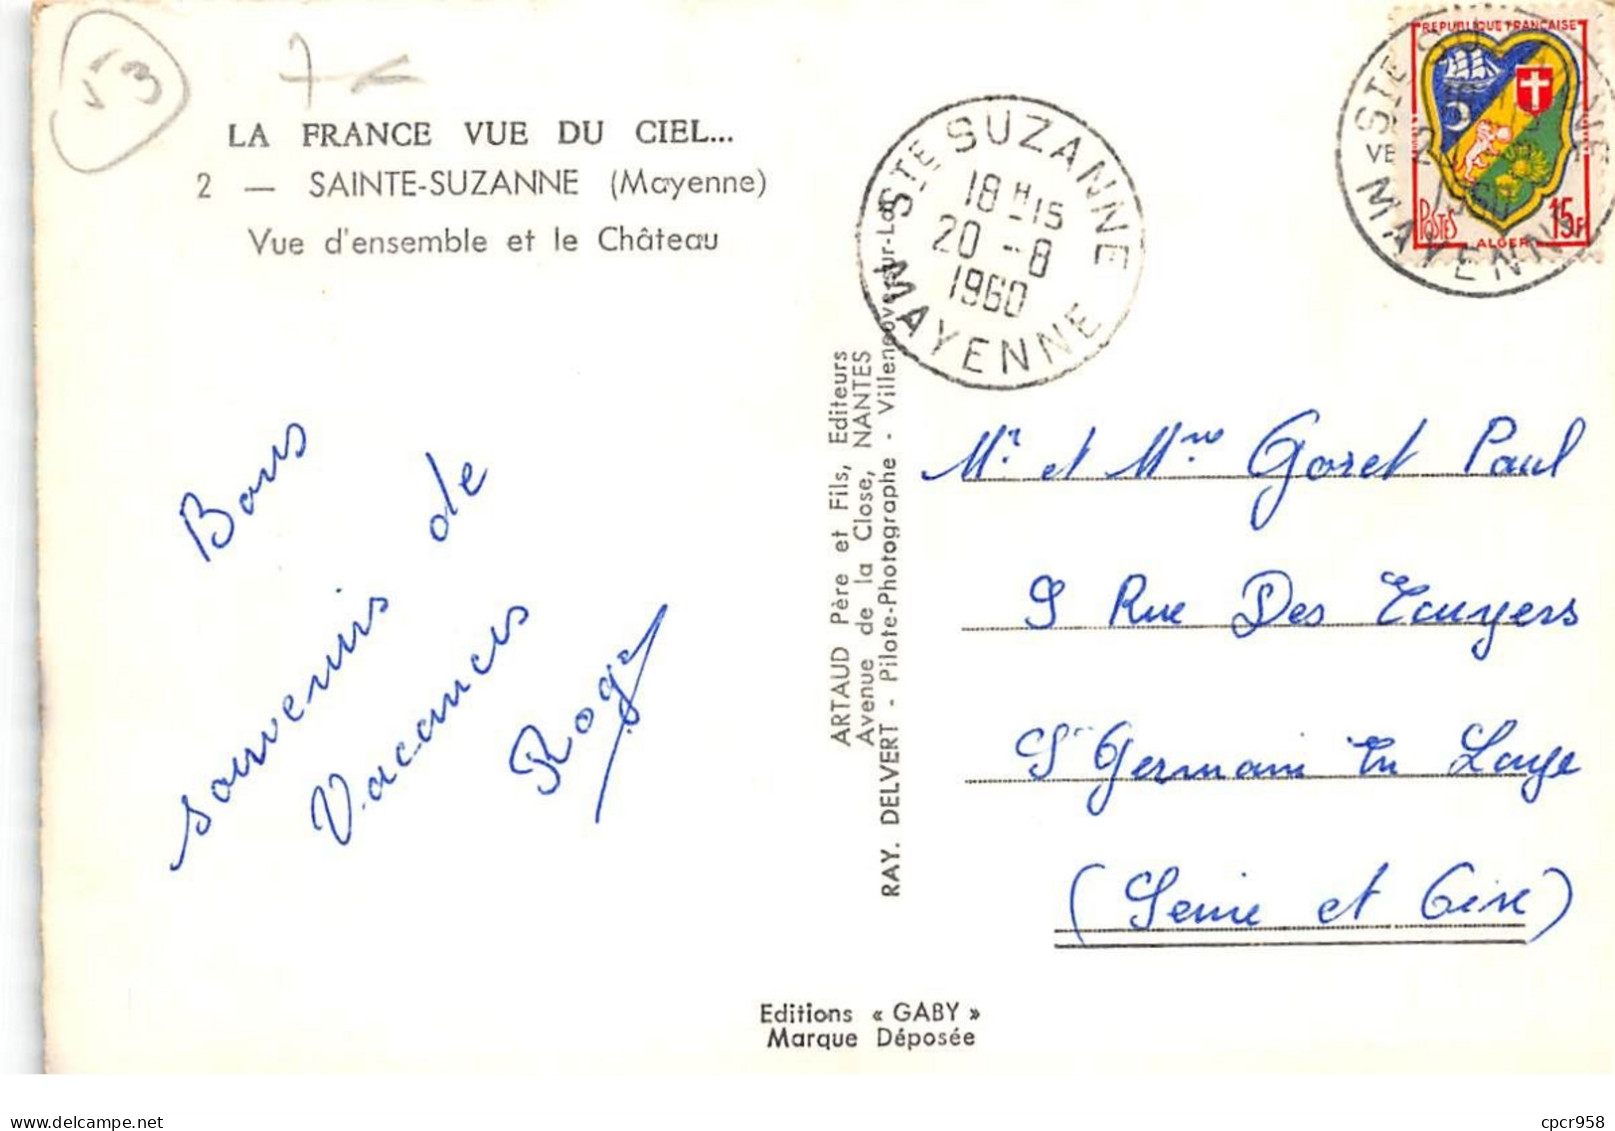 53
LA FRANCE VUE DU CIEL...
2 — SAINTE-SUZANNE (Mayenne)
Vue d'ensemble et le Château
Bons
souvenirs de
Vacances
Roger
ARTAUD Père et Fils, Editeurs
Avenue de la Close, NANTES
RAY. DELVERT - Pilote-Photographe - Villeneuve-sur-Lot
STE SUZANNE
18 H 15
20 - 8
1960
MAYENNE
REPUBLIQUE FRANÇAISE
POSTES
15F
ALGER
STE SUZANNE
1960
MAYENNE
Mr et Mme Goret Paul
Rue Des
St Germain En Laye
(Seine et Oise)
Editions « GABY »
Marque Déposée
cpcr958